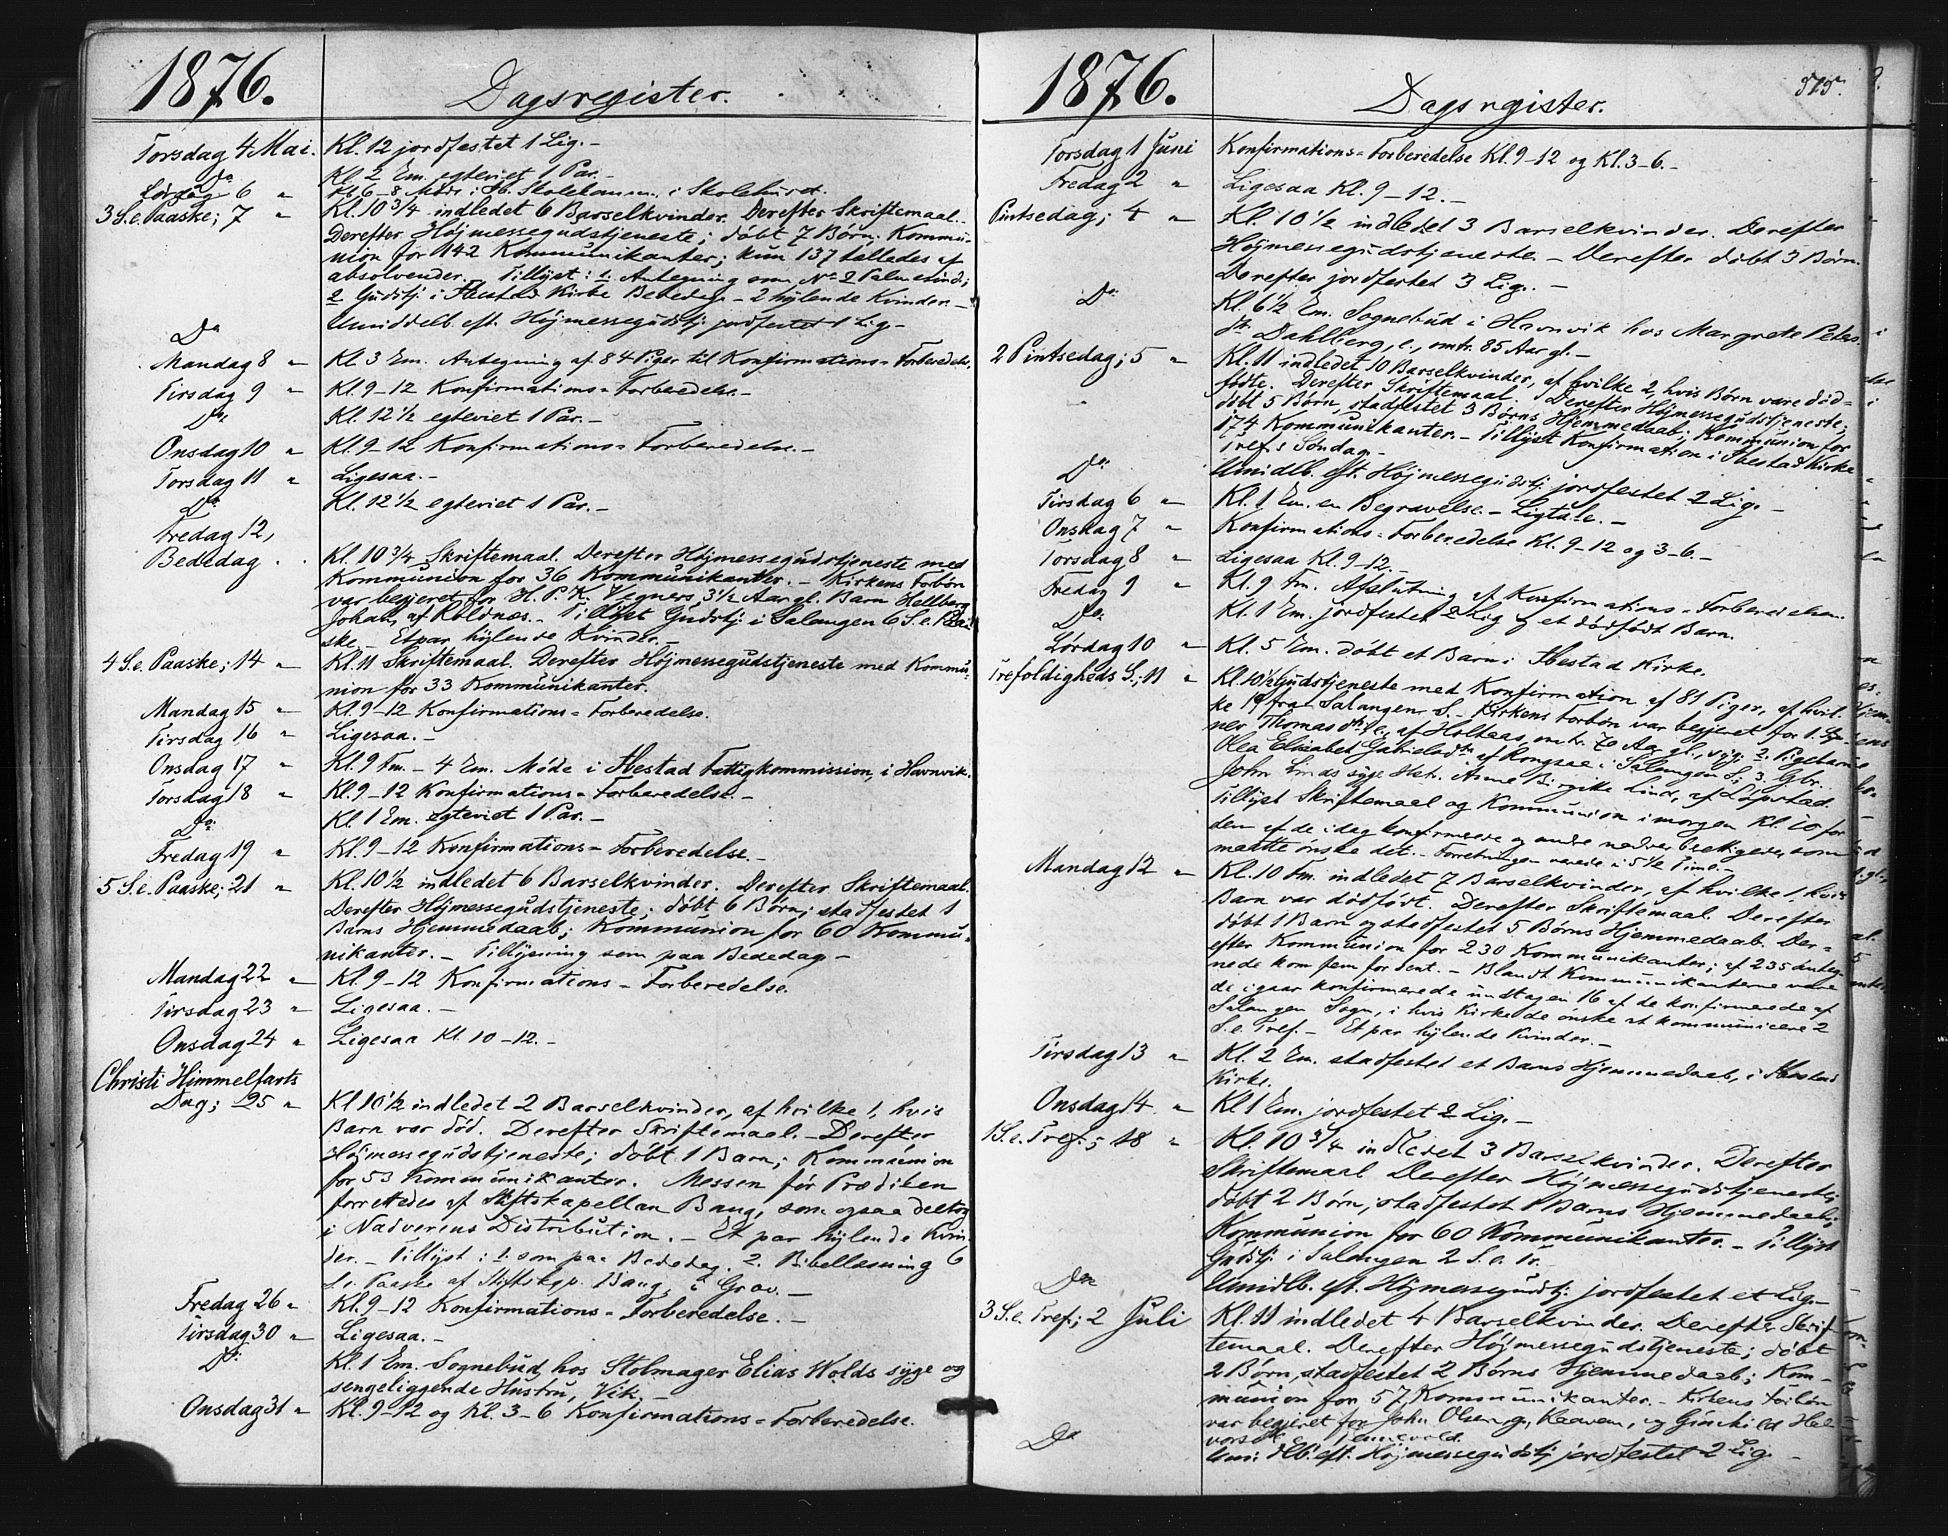 1876.
Dagsregister.
Torsdag 4 Mai. Kl. 12 jordfæstet 1 Lig. -
Do Kl. 2 Em. egteviet 1 Par. -
Lørdag 6 " Kl. 6-8 Møde i Skolekomm. i Skolehuset.
3 S. e. Paaske; 7 " Kl. 10 3/4 indledet 6 Barselkvinder. Derefter Skriftemaal.
Derefter Højmessegudstjeneste; døbt 7 Børn; Kommu-
nion for 142 Kommunikanter; kun 137 talledes af
absolvender. Tillyst: 1. Antegning som No 2 Palmesønd.;
2 Gudstj. i Ibestad Kirke Bededag. - 2 hylende Kvinder. -
Do Umiddelb. eft. Højmessegudstj. jordfestet 1 Lig. -
Mandag 8 " Kl. 3 Em. Antegning af 84 Piger til Konfirmations-Forberedelse.
Tirsdag 9 " Kl. 9-12 Konfirmations-Forberedelse. -
Do Kl. 12 1/2 egteviet 1 Par. -
Onsdag 10 " Kl. 9-12 Konfirmations-Forberedelse. -
Torsdag 11 " Ligesaa. -
Do Kl. 12 1/2 egteviet 1 Par. -
Fredag 12,
Bededag . . Kl. 10 3/4 Skriftemaal. Derefter Højmessegudstjeneste med
Kommunion for 36 Kommunikanter. - Kirkens Forbøn
var begjeret for H. P. K. Vegners 3 1/2 Aar gl. Barn Hellberg
Johan, af Roldnæs. - Tillyst Gudstj. i Salangen 6 S. e. Paa-
ske. - Et par hylende Kvinder. -
4 S. e. Paaske; 14 " Kl. 11 Skriftemaal. Derefter Højmessegudstjeneste med Kommu-
nion for 33 Kommunikanter.
Mandag 15 " Kl. 9-12 Konfirmations-Forberedelse.
Tirsdag 16 " Ligesaa. -
Onsdag 17 " Kl. 9 Fm. - 4 Em. Møde i Ibestad Fattigkommission, i Havnvik.
Torsdag 18 " Kl. 9-12 Konfirmations-Forberedelse. -
Do Kl. 1 Em. egteviet 1 Par. -
Fredag 19 " Kl. 9-12 Konfirmations-Forberedelse. -
5 S. e. Paaske; 21 " Kl. 10 1/2 indledet 6 Barselkvinder. Derefter Skriftemaal.
Derefter Højmessegudstjeneste; døbt 6 Børn; stadfestet 1
Barns Hjemmedaab; Kommunion for 60 Kommu-
nikanter. - Tillysning som paa Bededag. -
Mandag 22 " Kl. 9-12 Konfirmations-Forberedelse.
Tirsdag 23 " Ligesaa. -
Onsdag 24 " Ligesaa Kl. 10-12. -
Christi Himmelfarts
Dag; 25 " Kl 10 1/2 indledet 2 Barselkvinder, af hvilke 1, hvis
Barn var død. Derefter Skriftemaal. - Derefter
Højmessegudstjeneste; døbt 1 Barn; Kommunion
for 53 Kommunikanter. Messen før Prædiken
forrettedes af Stiftskapellan Bang, som ogsaa deltog
i Nadverens Distribution. - Et par hylende Kvin-
der. - Tillyst: 1. som paa Bededag. 2. Bibellæsning 6
S. e. Paaske af Stiftskap. Bang, i Grov. -
Fredag 26 " Kl. 9-12 Konfirmations-Forberedelse. -
Tirsdag 30 " Ligesaa. -
Do: Kl. 1 Em. Sognebud hos Stolmager Elias Wolds syge og
sengeliggende Hustru, Vik. -
Onsdag 31 " Kl. 9-12 og Kl. 3-6 Konfirmations-Forberedelse.
1876.
Dagsregister.
515.
Torsdag 1 Juni Konfirmations-Forberedelse Kl. 9-12 og Kl. 3-6. -
Fredag 2 " Ligesaa Kl. 9-12. -
Pintsedag; 4 " Kl. 10 1/2 indledet 3 Barselkvinder. Derefter
Højmessegudstjeneste. - Derefter døbt 3 Børn.
Derefter jordfestet 3 Lig. -
Do: Kl. 6 1/2 Em. Sognebud i Havnvik hos Margrete Peters-
dtr Dahlberg, e., omtr. 85 Aar gl. -
2 Pintsedag; 5 " Kl. 11 indledet 10 Barselkvinder, af hvilke 2, hvis Børn vare død-
fødte. Derefter Skriftemaal. Derefter Højmessegudstjeneste;
døbt 5 Børn, stadfestet 3 Børns Hjemmedaab; Kommunion for
174 Kommunikanter. - Tillyst Konfirmation i Ibestad Kirke
Tref.s Søndag. -
Do: Umidlb. eft. Højmessegudstj. jordfestet 2 Lig. -
Tirsdag 6 " Kl. 1 Em. en Begravelse. - Ligtale. -
Onsdag 7 " Konfirmations-Forberedelse Kl. 9-12 og 3-6. -
Torsdag 8 " Ligesaa Kl. 9-12. -
Fredag 9 " Kl. 9 Fm. Afslutning af Konfirmations-Forberedelsen.
Do: Kl. 1 Em. jordfestet 2 Lig og et dødfødt Barn.
Lørdag 10 " Kl. 5 Em. døbt et Barn i Ibestad Kirke.
Trefoldigheds S.; 11 " Kl. 10 1/2 Gudstjeneste med Konfirmation af 81 Piger, af hvil-
ke 19 fra Salangen S. - Kirkens Forbøn var begjeret for 1.
Thomasdtr, e., af Holtaas, omtr. 70 Aar gl., syg; 2. Pigebarnet
Olea Elisabet Gabrielsdtr af Rongsae i Salangen S.; 3. Gbr.
John Linds syge Hstr. Anne Birgitte Lind, af Løpstad.
Tillyst Skriftemaal og Kommunion imorgen Kl. 10 for
dem af de idag konfirmerede og andre nadverberettigede, som
maatte ønske det. - Forretningen varede i 5 1/2 Time. -
Mandag 12 " Kl. 10 Fm. indledet 7 Barselkvinder, af hvilke 1, hvis
Barn var dødfødt. Derefter Skriftemaal. Derefter
døbt 1 Barn og stadfestet 5 Børns Hjemmedaab. Der-
efter Kommunion for 230 Kommunikanter; af 235 anteg-
nede kom fem for sent. - Blandt Kommunikanterne vare
de igaar konfirmerede undtagen 16 af de konfirmerede af
Salangen Sogn, i hvis Kirke de ønske at kommunicere 2
S. e. Tref. - Et par hylende Kvinder. -
Tirsdag 13 " Kl. 2 Em. stadfestet et Barns Hjemmedaab, i Ibestad
Kirke.
Onsdag 14 " Kl 1 Em. jordfestet 2 Lig. -
1 S. e. Tref.; 18 " Kl. 10 3/4 indledet 3 Barselkvinder. Derefter
Skriftemaal. Derefter Højmessegudstjeneste;
døbt 2 Børn, stadfestet 1 Barns Hjemmedaab;
Kommunion for 60 Kommunikanter. - Tillyst
Gudstj. i Salangen 2 S. e. Tr.
Do Umidlb. eft. Højmessegudstj. jordfestet et Lig. -
3 S. e. Tref.; 2 Juli Kl. 11 indledet 4 Barselkvinder. Derefter Skrif-
temaal. Derefter Højmessegudstjeneste; døbt
2 Børn, stadfestet 2 Børns Hjemmedaab; Kom-
munion for 57 Kommunikanter. - Kirkens Forbøn
var begjeret for John Olsen, og Gunhild Hal-
vorsdtr
Do Umidlb. eft. Højmessegudstj jordfestet 2 Lig. -